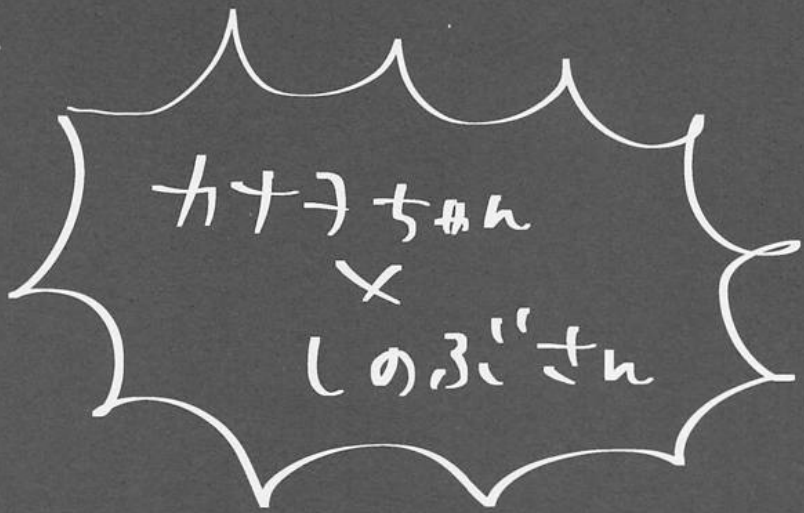 カナヲちゃん
×
しのぶさん